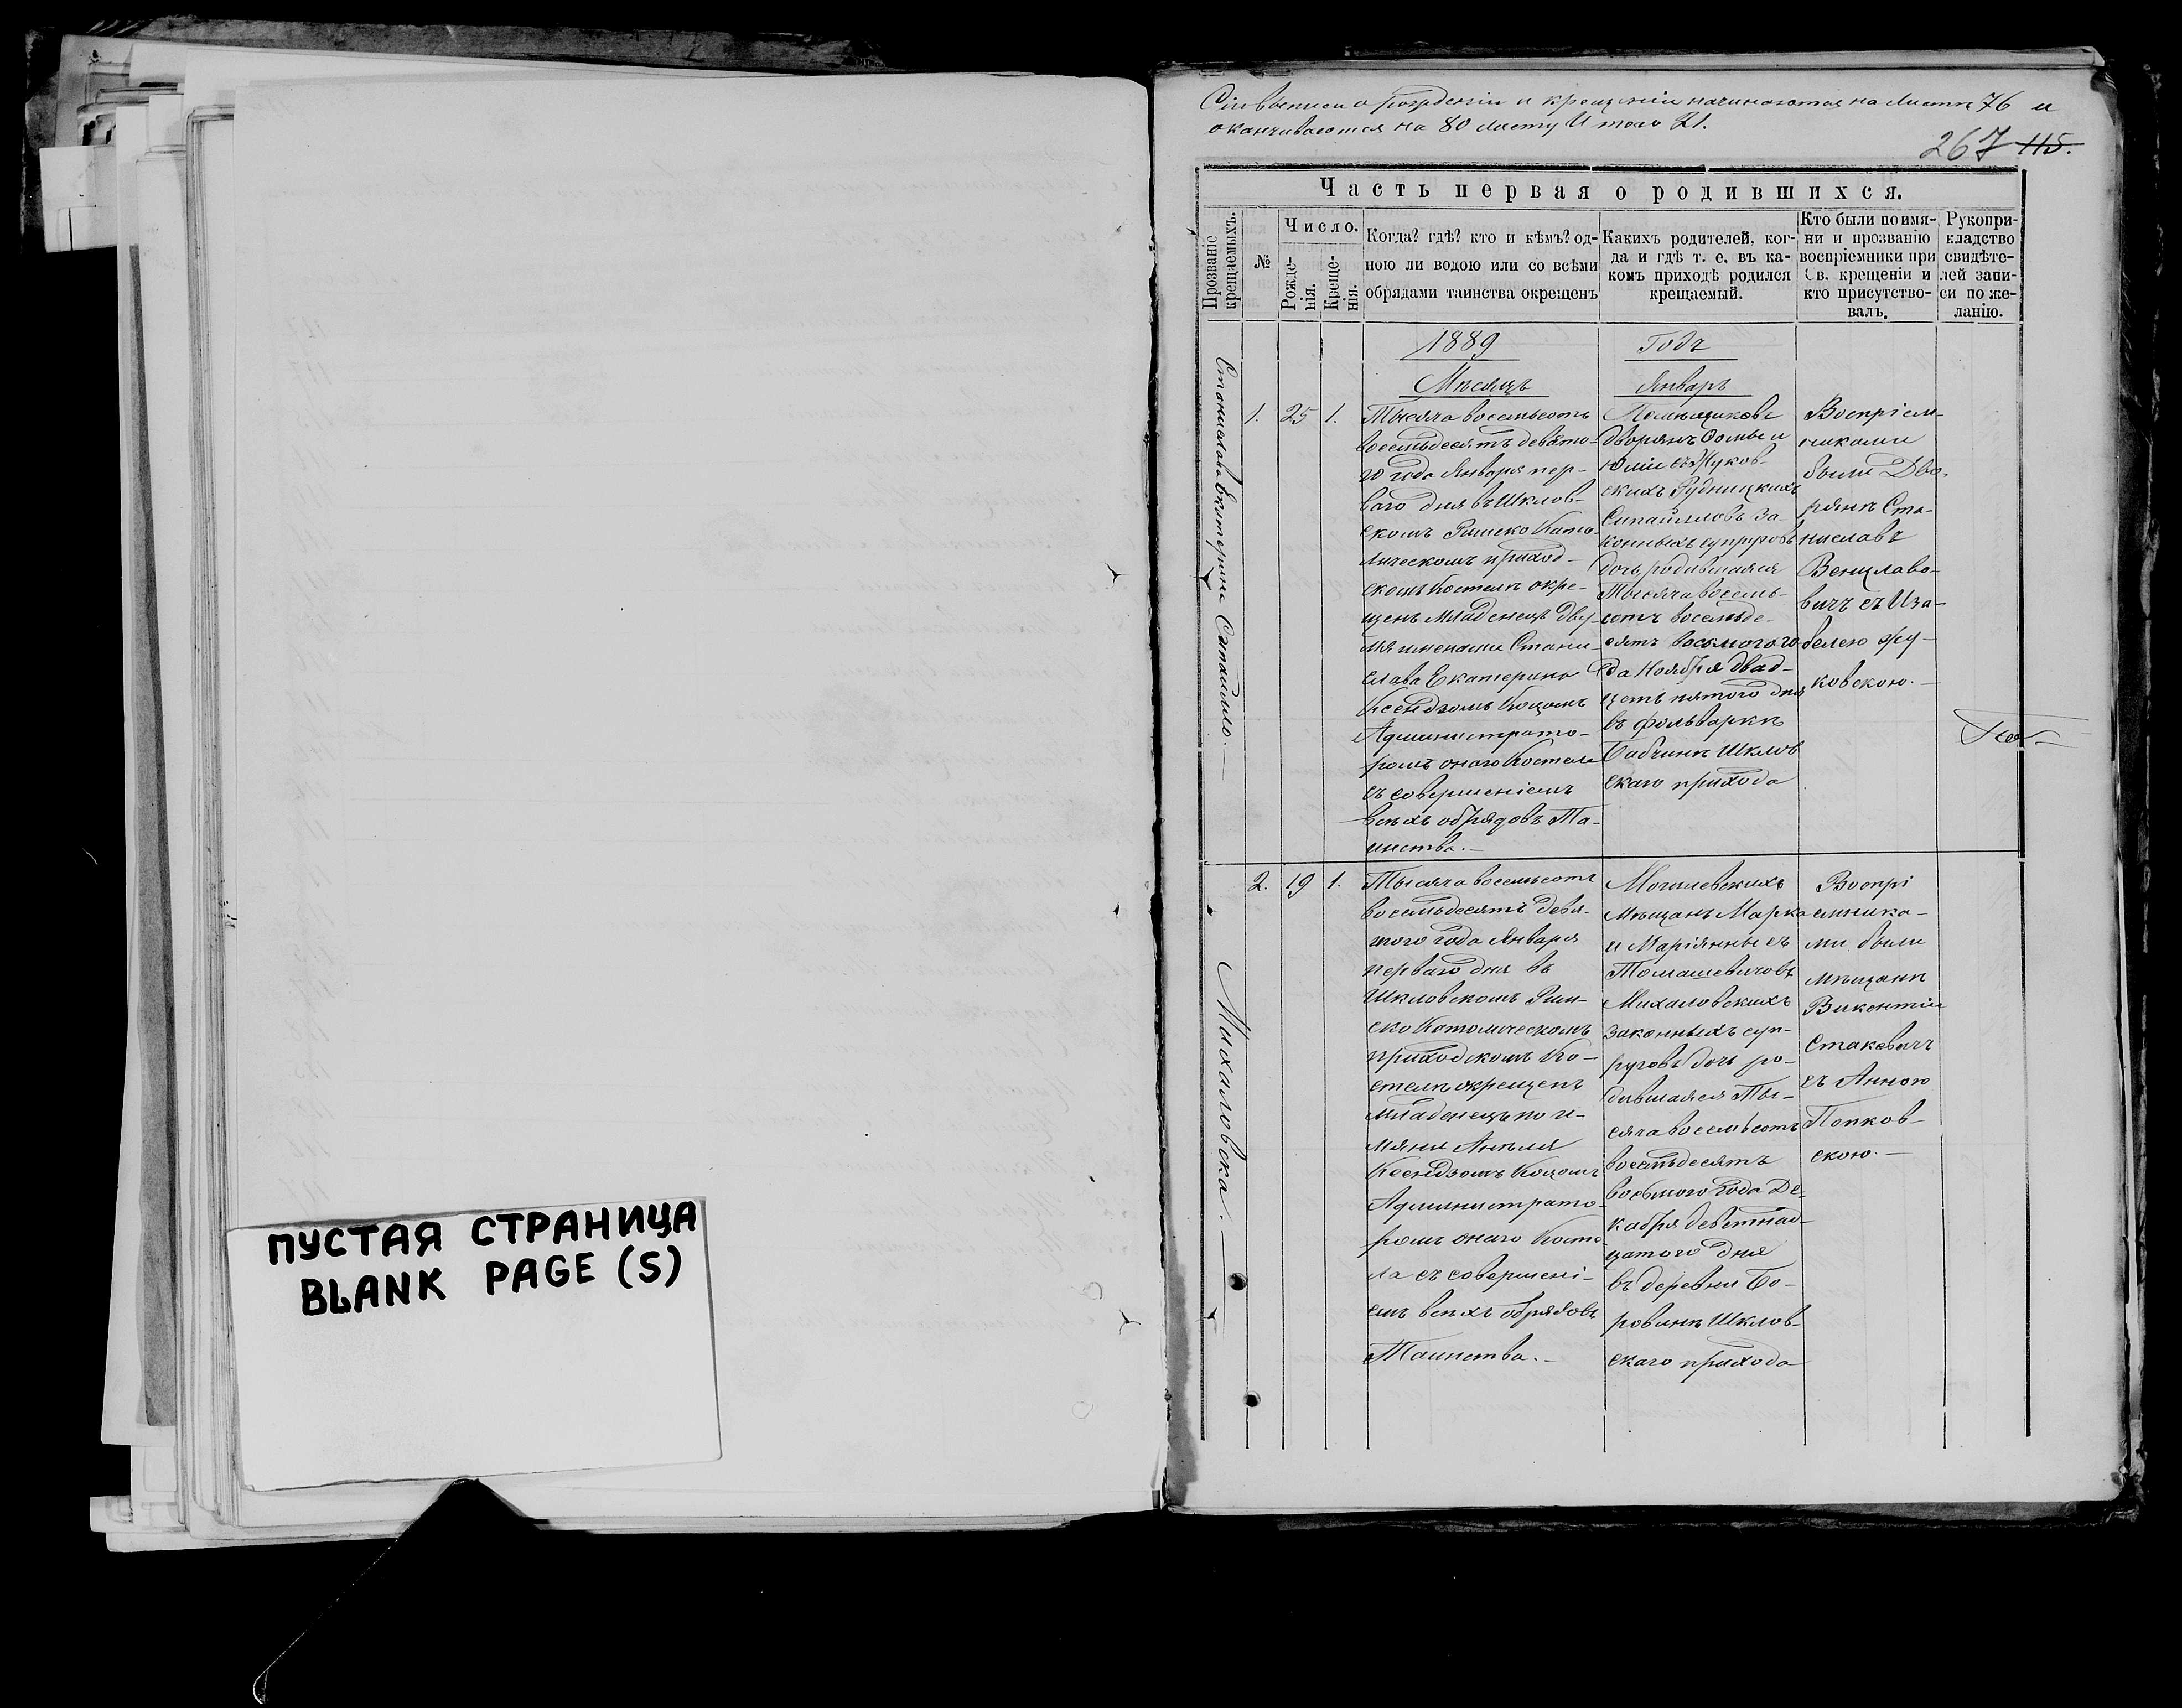 ПУСТАЯ СТРАНИЦА
BLANK PAGE (S)
Сіи выписи о рожденіи и крещеніи начинаются на листѣ 76 и
оканчиваются на 80 листу Итого 21.
267 115.
Часть первая о родившихся.
Прозваніе
крещаемыхъ.
№
Число.
Рожде-
нія.
Креще-
нія.
Когда? гдѣ? кто и кѣмъ? од-
ною ли водою или со всѣми
обрядами таинства окрещенъ
Какихъ родителей, ког-
да и гдѣ т. е. въ ка-
комъ приходѣ родился
крещаемый.
Кто были по имя-
ни и прозванію
воспріемники при
Св. крещеніи и
кто присутство-
валъ.
Рукопри-
кладство
свидѣте-
лей запи-
си по же-
ланію.
1889 Годъ
Мѣсяцъ Январь
Екатерина Сипайлло.
1. 25 1.
Тысяча восемьсотъ
восемьдесятъ девято-
го года Января пер-
ваго дня въ Шклов-
скомъ Римско Като-
лическомъ приход-
скомъ Костелѣ окре-
щенъ младенецъ дву-
мя именами Стани-
слава Екатерина
Ксендзомъ Коцомъ
Администрато-
ромъ онаго Костела
съ совершеніемъ
всѣхъ обрядовъ Та-
инства.
Помѣщиковъ
Дворянъ
Юліи съ Жуков-
скихъ Рудницкихъ
Сипайлловъ за-
конныхъ супруговъ
дочь родившаяся
Тысяча восемь-
сотъ восемьде-
сятъ восьмого го
да Ноября двад-
цать пятого дня
въ фольваркѣ
Бабчинѣ Шклов
скаго прихода
Воспріем-
никами
были Дво-
рянѣ Ста-
ниславъ
Венцлаво-
вичъ съ Иза-
белею Жу-
ковскою.
Михаловска.
2. 19 1.
Тысяча восемьсотъ
восемьдесятъ девя-
того года Января
перваго дня въ
Шкловскомъ Рим-
ско Католическомъ
приходскомъ Ко-
стелѣ окрещенъ
младенецъ по и-
мяни Анеля
Ксендзомъ Коцомъ
Администрато-
ромъ онаго Косте
ла съ совершені-
емъ всѣхъ обрядовъ
Таинства.
Могилевскихъ
Мѣщанъ Марка
и Маріянны съ
Томашевичовъ
Михаловскихъ
законныхъ суп-
руговъ дочь ро-
дившаяся Ты-
сяча восемьсотъ
восемьдесятъ
восьмого года Де-
кабря деветнад-
цатого дня
въ деревни Бо-
ровинѣ Шклов-
скаго прихода
Воспрі
емника-
ми были
мѣщанѣ
Викентій
Стакевичъ
съ Анною
Попков-
скою.